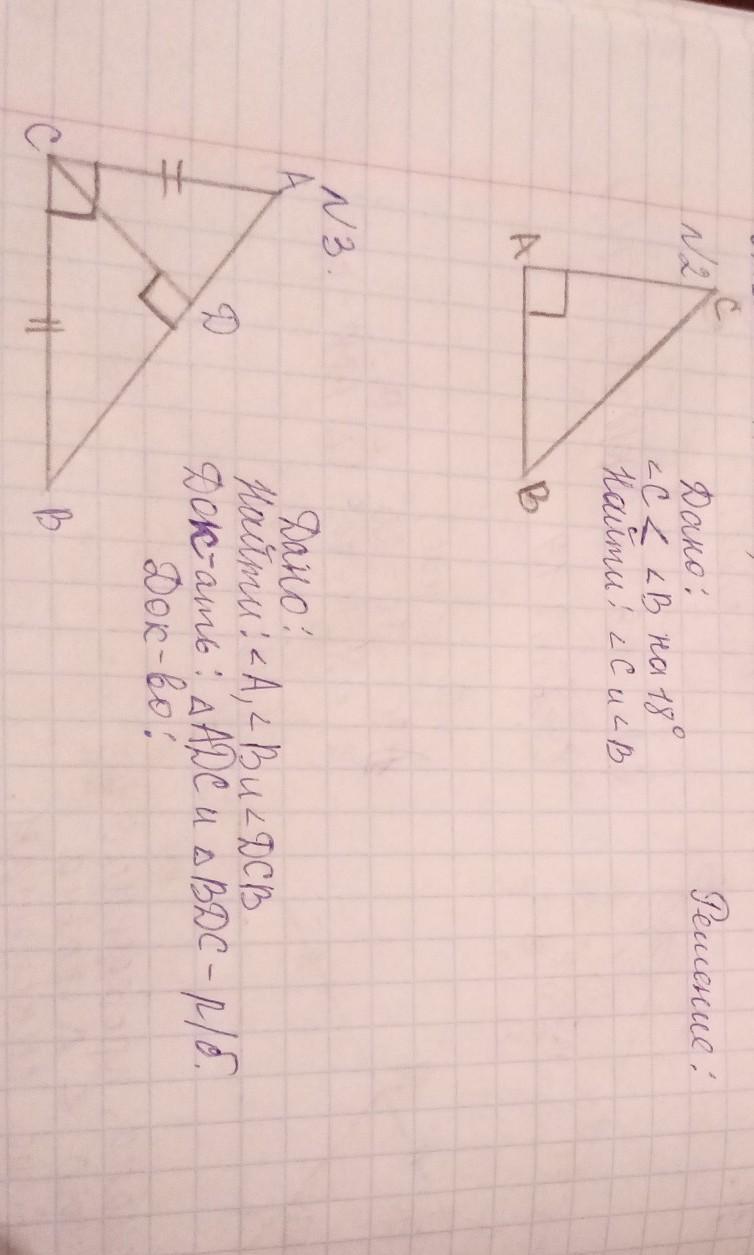 N2
C
A
B
Дано:
<C < <B на 18°
Найти: <C и <B
Решение:
N3.
A
C
D
B
Дано:
Найти: <A, <B и <DCB
Док-ать: △ADC и △BDC - р/б.
Док-во: